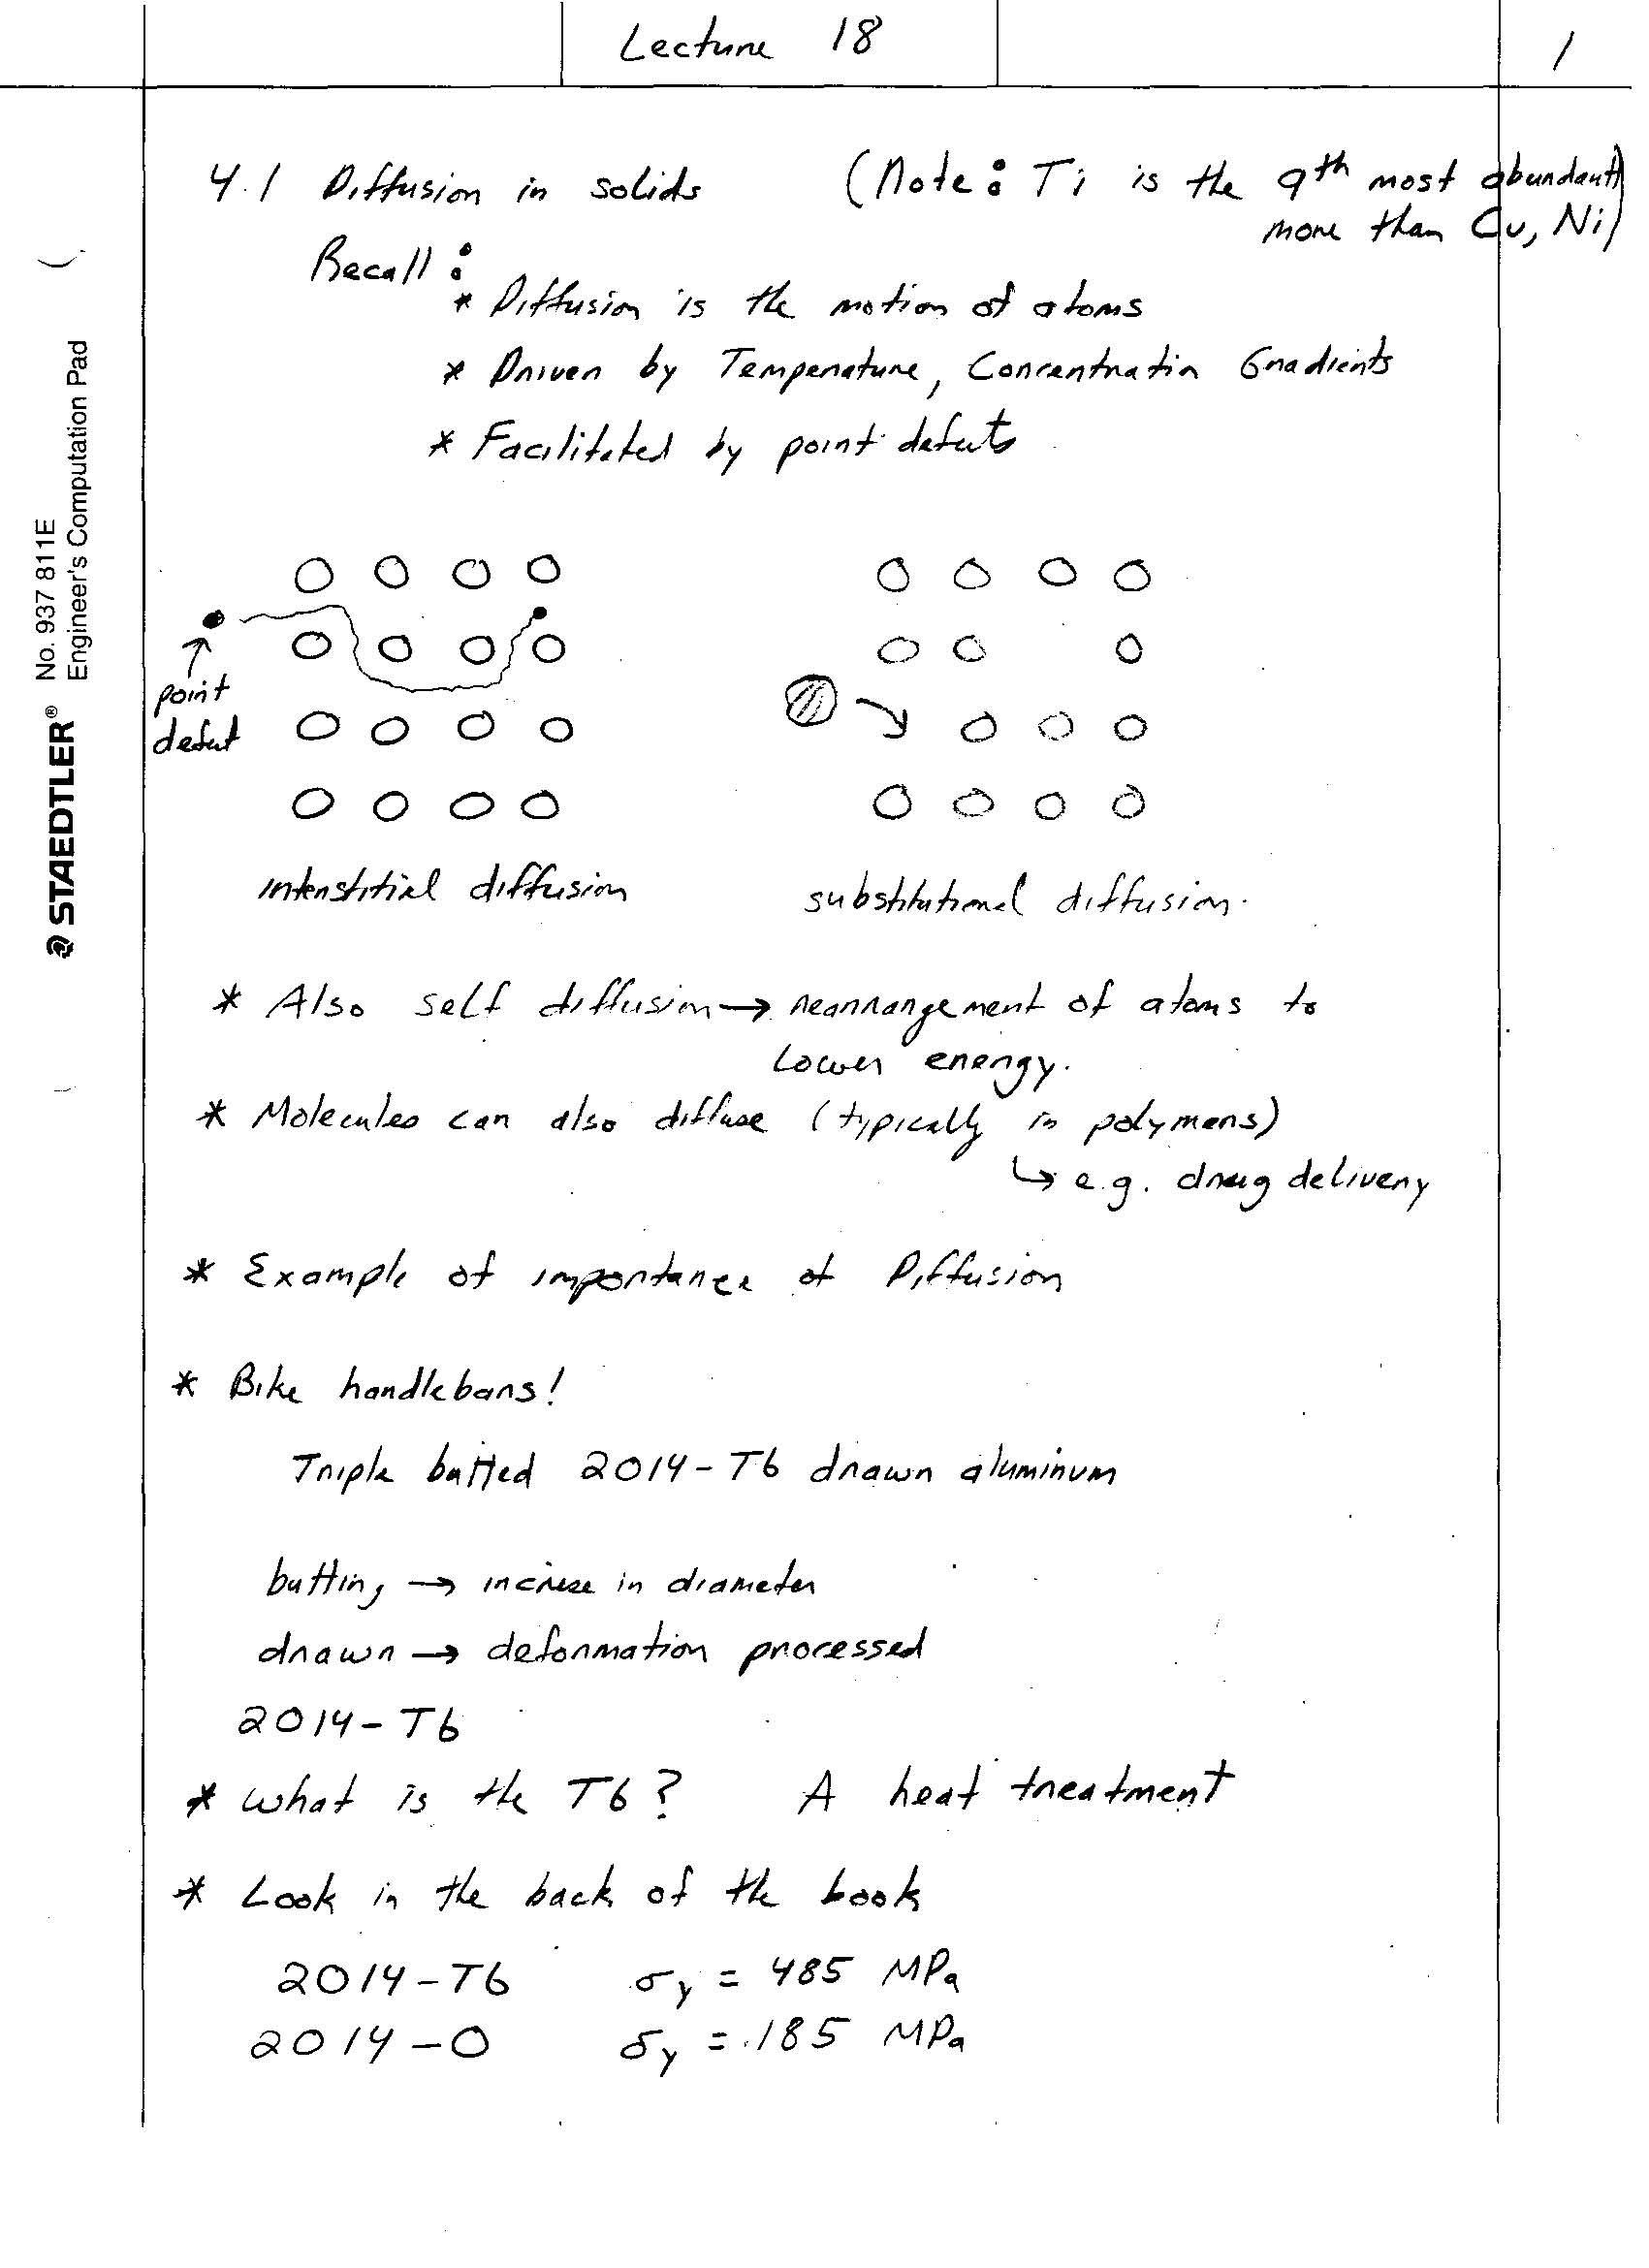 Lecture 18
1
4.1 Diffusion in solids (Note: Ti is the 9th most abundant
more than Cu, Ni)
Recall:
* Diffusion is the motion of atoms
* Driven by Temperature, Concentratin Gradients
* Facilitated by point defects
point
defect
interstitial diffusion
substitutional diffusion.
* Also self diffusion → rearrangement of atoms to
lower energy.
* Molecules can also diffuse (typically in polymers)
↳ e.g. drug delivery
* Example of importance of Diffusion
* Bike handlebars!
Triple butted 2014-T6 drawn aluminum
butting → increase in diameter
drawn → deformation processed
2014-T6
* What is the T6? A heat treatment
* Look in the back of the book
2014-T6 σy = 485 MPa
2014-O σy = 185 MPa
No. 937 811E
Engineer's Computation Pad
STAEDTLER®